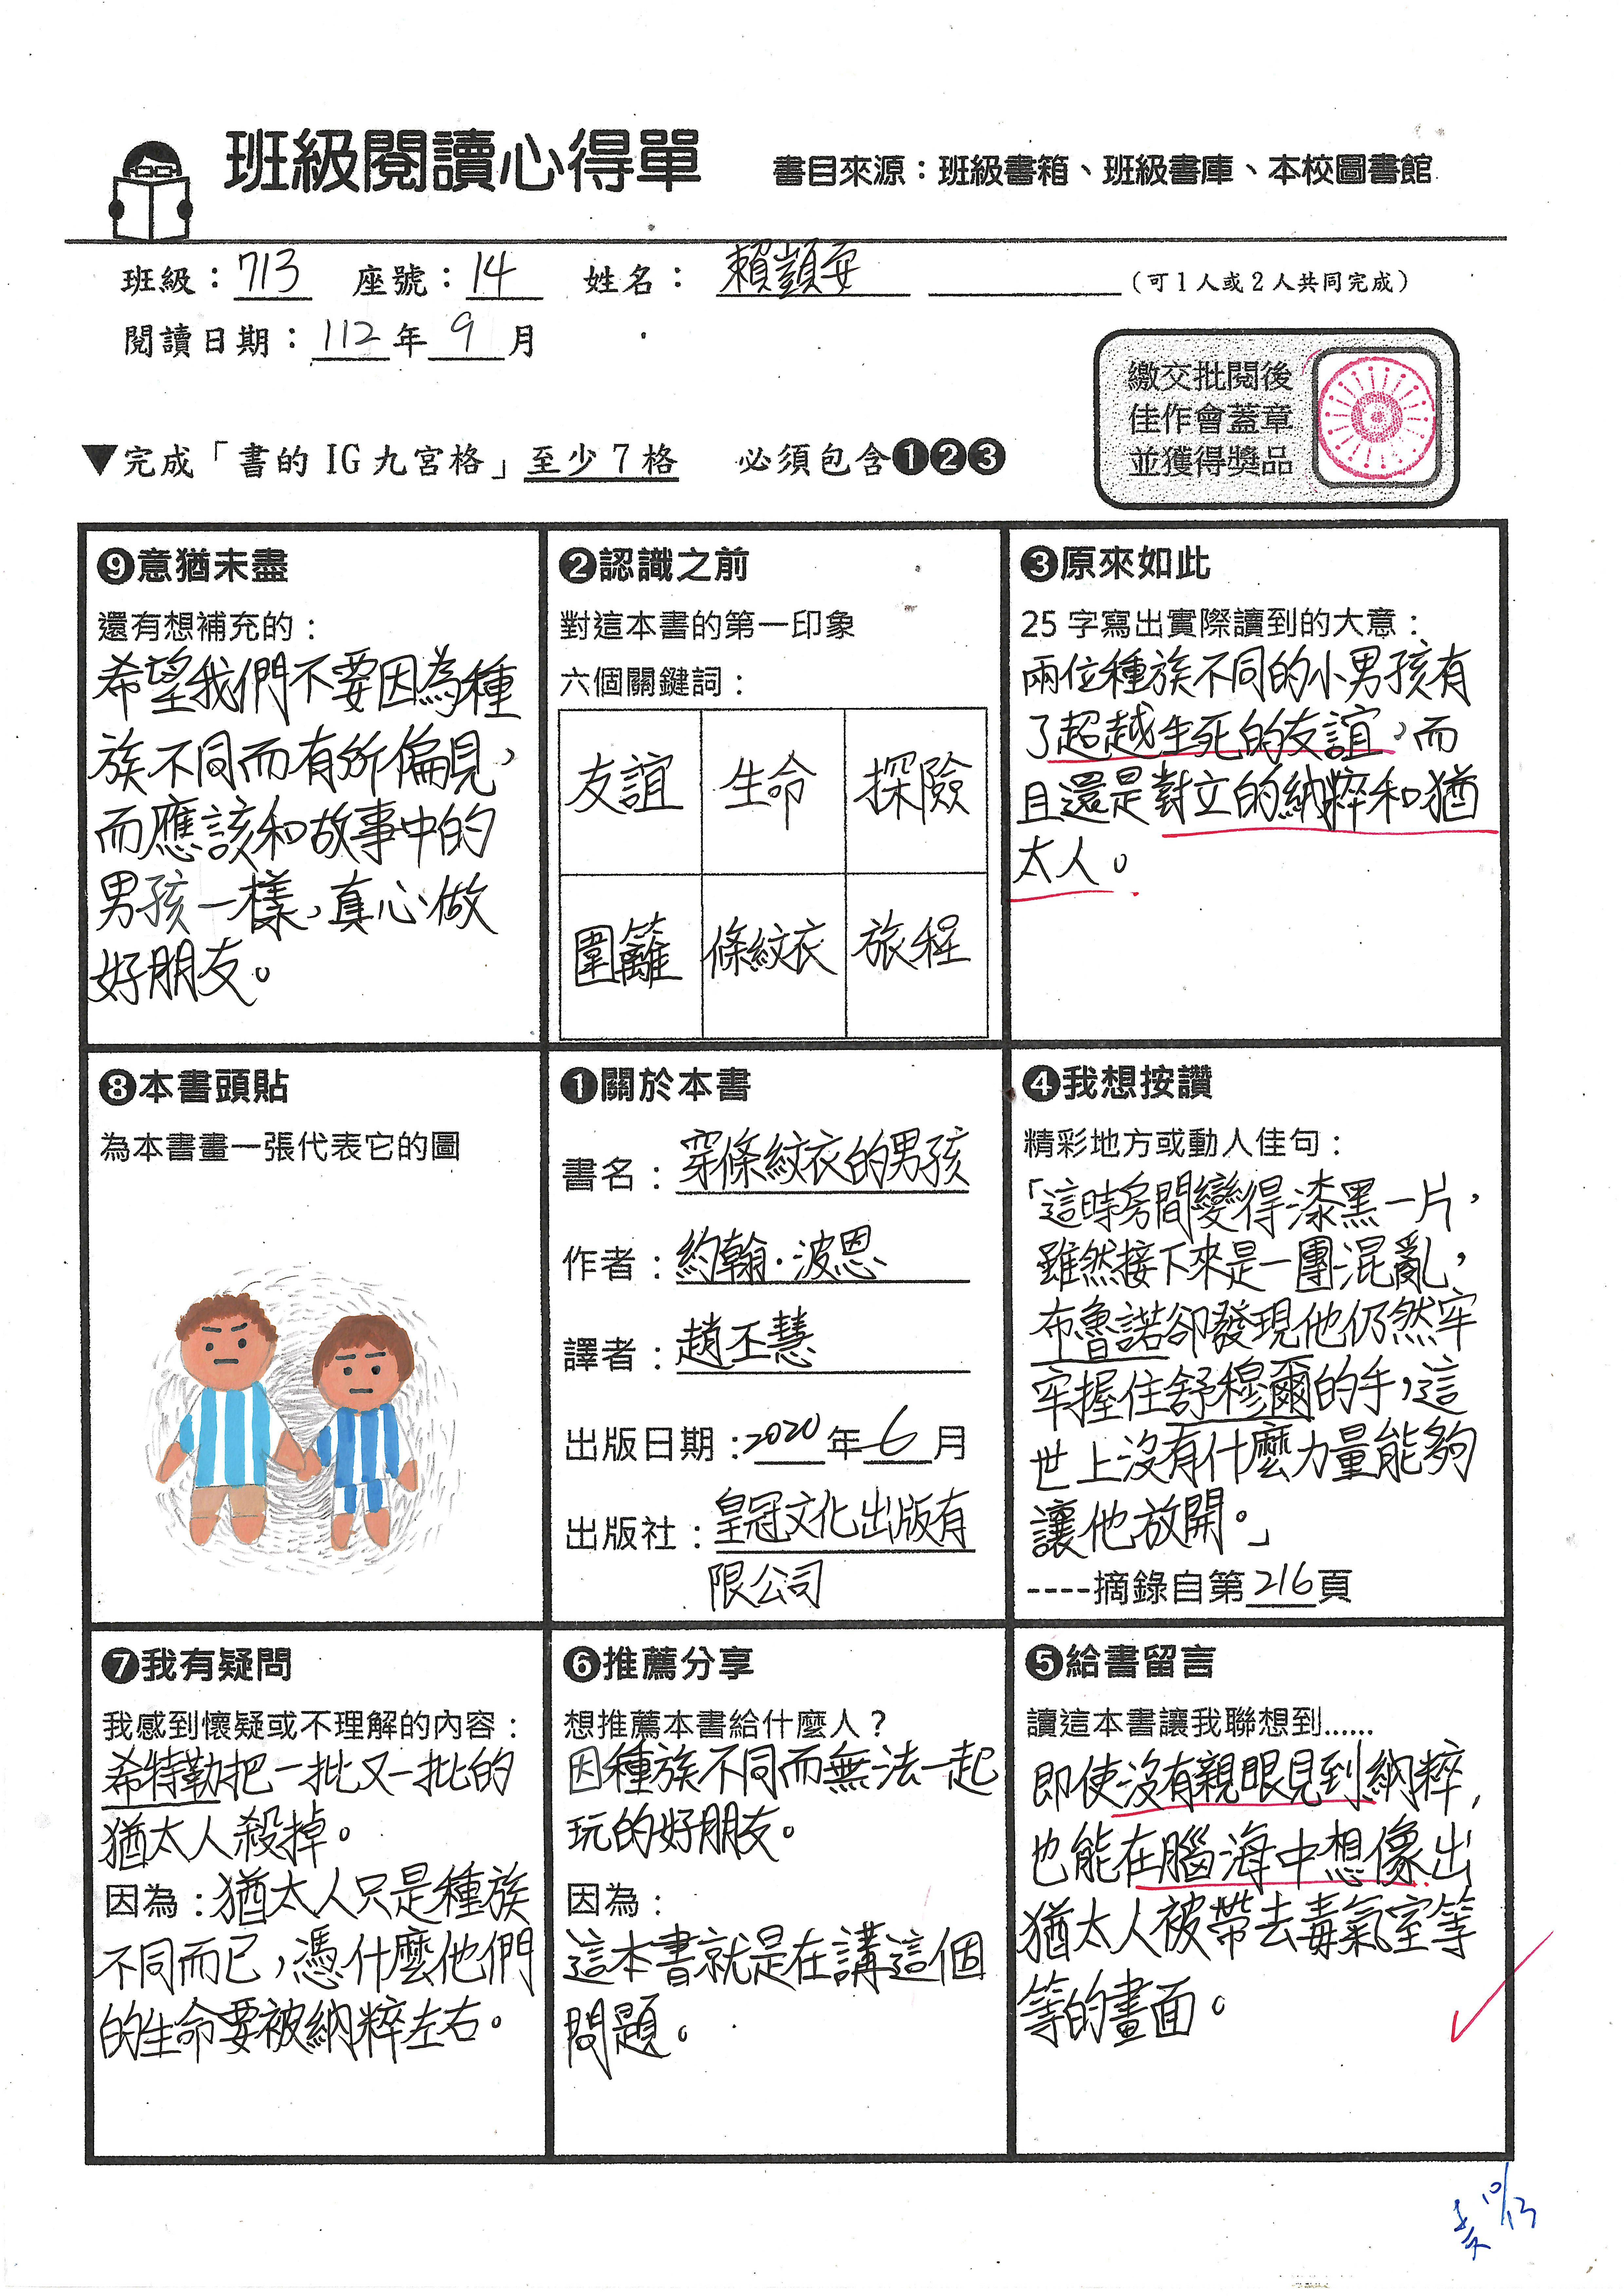 班級閱讀心得單
書目來源：班級書箱、班級書庫、本校圖書館
班級：713 座號：14 姓名：賴顗安 （可1人或2人共同完成）
閱讀日期：112年9月
繳交批閱後
佳作會蓋章
並獲得獎品
▼完成「書的 IG 九宮格」至少7格 必須包含❶❷❸
❾意猶未盡
還有想補充的：
希望我們不要因為種
族不同而有所偏見，
而應該和故事中的
男孩一樣，真心做
好朋友。
❷認識之前
對這本書的第一印象
六個關鍵詞：
友誼 生命 探險
圍籬 條紋衣 旅程
❸原來如此
25字寫出實際讀到的大意：
兩位種族不同的小男孩有
了超越生死的友誼，而
且還是對立的納粹和猶
太人。
❽本書頭貼
為本書畫一張代表它的圖
❶關於本書
書名：穿條紋衣的男孩
作者：約翰·波恩
譯者：趙丕慧
出版日期：2020年6月
出版社：皇冠文化出版有
限公司
❹我想按讚
精彩地方或動人佳句：
「這時房間變得漆黑一片，
雖然接下來是一團混亂，
布魯諾卻發現他仍然牢
牢握住舒穆爾的手，這
世上沒有什麼力量能夠
讓他放開。」
----摘錄自第216頁
❼我有疑問
我感到懷疑或不理解的內容：
希特勒把一批又一批的
猶太人殺掉。
因為：猶太人只是種族
不同而已，憑什麼他們
的生命要被納粹左右。
❻推薦分享
想推薦本書給什麼人？
因種族不同而無法一起
玩的好朋友。
因為：
這本書就是在講這個
問題。
❺給書留言
讀這本書讓我聯想到......
即使沒有親眼見到納粹，
也能在腦海中想像出
猶太人被帶去毒氣室等
等的畫面。
10/13